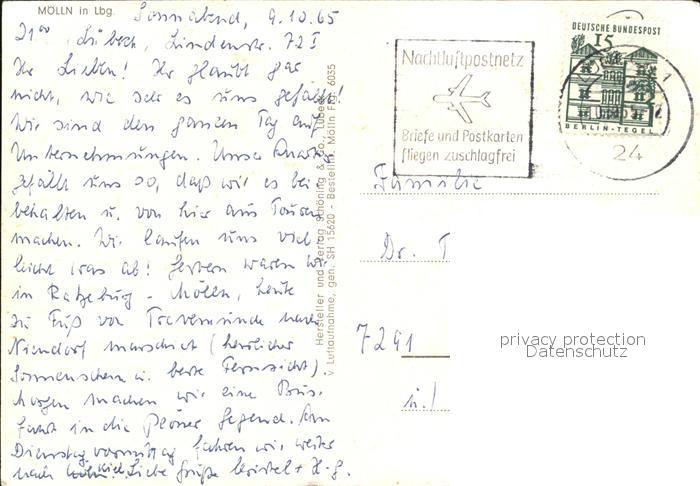 MÖLLN in Lbg.
Sonnabend, 9.10.65
21⁰⁰ Lübeck, Lindenstr. 72 I
Ihr Lieben! Ihr glaubt gar
nicht, wie sehr es uns gefällt!
Wir sind den ganzen Tag auf
Unternehmungen. Unser Quartier
gefällt uns so, daß wir es bei
behalten u. von hier aus Touren
machen. Wir laufen uns viel
leicht was ab! Gestern waren wir
in Ratzeburg - Mölln, heute
zu Fuß von Travemünde nach
Niendorf marschiert (herrlicher
Sonnenschein u. beste Fernsicht).
Morgen machen wir eine Bus-
fahrt in die Plöner Gegend. Am
Dienstag vormittag fahren wir weiter
nach Kiel. Liebe Grüße Christel + H-G.
Hersteller und Verlag Schöning & Co., Lübeck
v. Luftaufnahme, gen. SH 15620 - Bestellnr. Mölln Fbf. 6035
Nachtluftpostnetz
Briefe und Postkarten
fliegen zuschlagfrei
DEUTSCHE BUNDESPOST
15
BERLIN-TEGEL
24
Familie
Dr. T
7291
privacy protection
Datenschutz